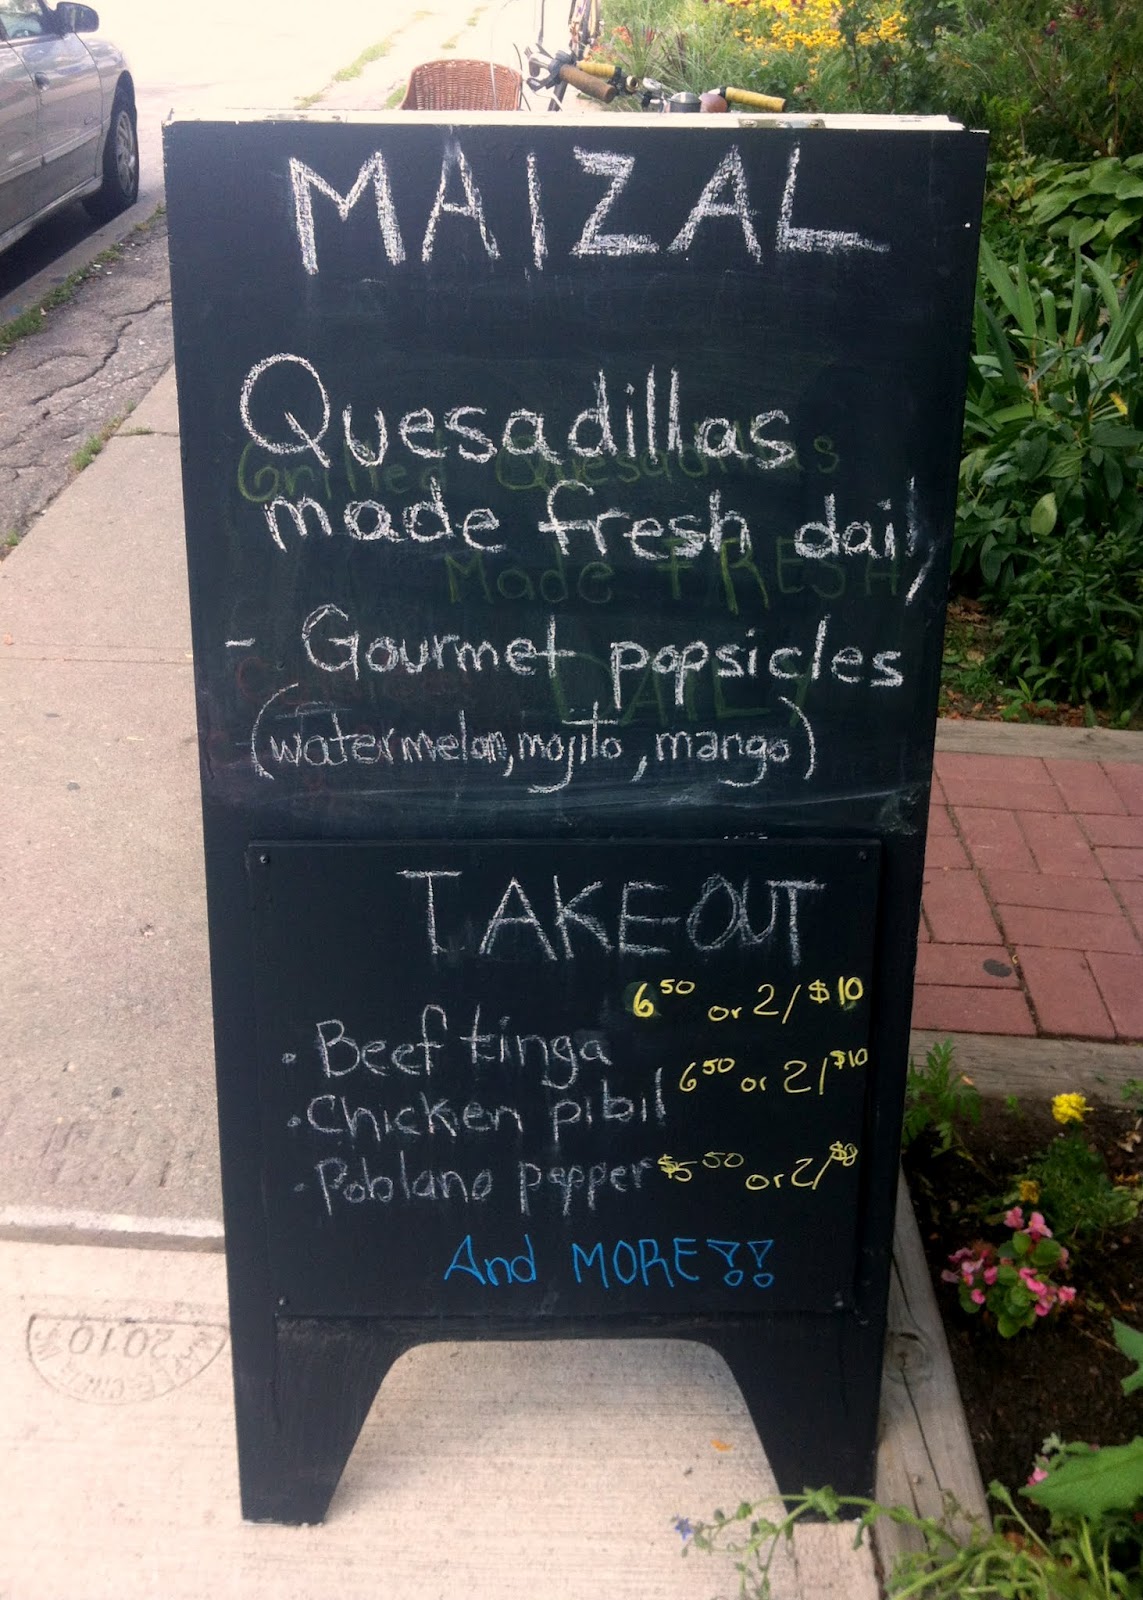 MAIZAL
Quesadillas
Grilled Quesadillas
made fresh daily
Made FRESH
- Gourmet popsicles
DAILY
(watermelon, mojito, mango)
TAKE-OUT
6 50 or 2/$10
· Beef tinga
6 50 or 2/$10
· Chicken pibil
· Poblano pepper $5 50 or 2/$8
And MORE!!
2010